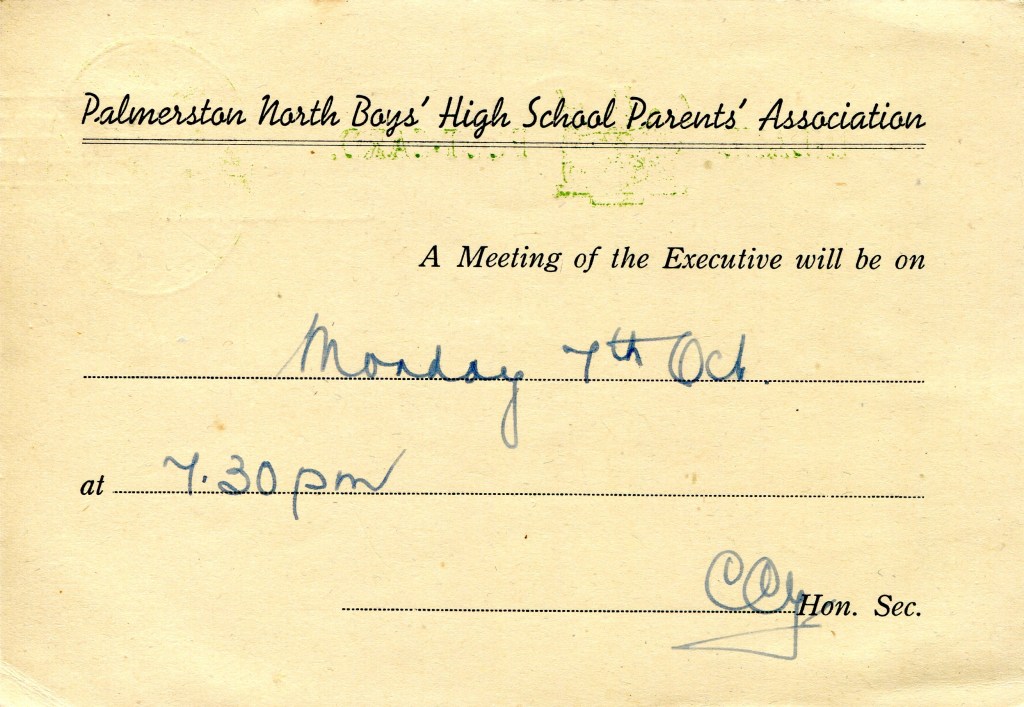 Palmerston North Boys' High School Parents' Association
A Meeting of the Executive will be on
Monday 7th Oct.
at 7.30 pm
Hon. Sec.